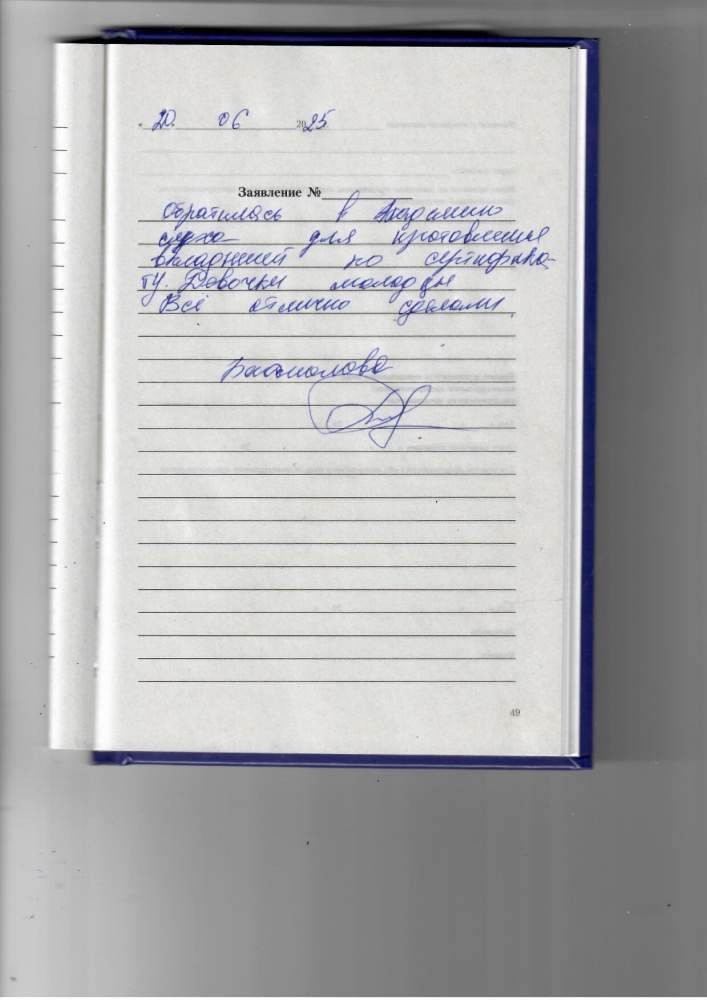 « 20. 06 2025
Заявление №
Обратилась в Академию
слуха для изготовления
вкладышей по сертифика-
ту. Девочки молодцы
Всё отлично сделали.
49